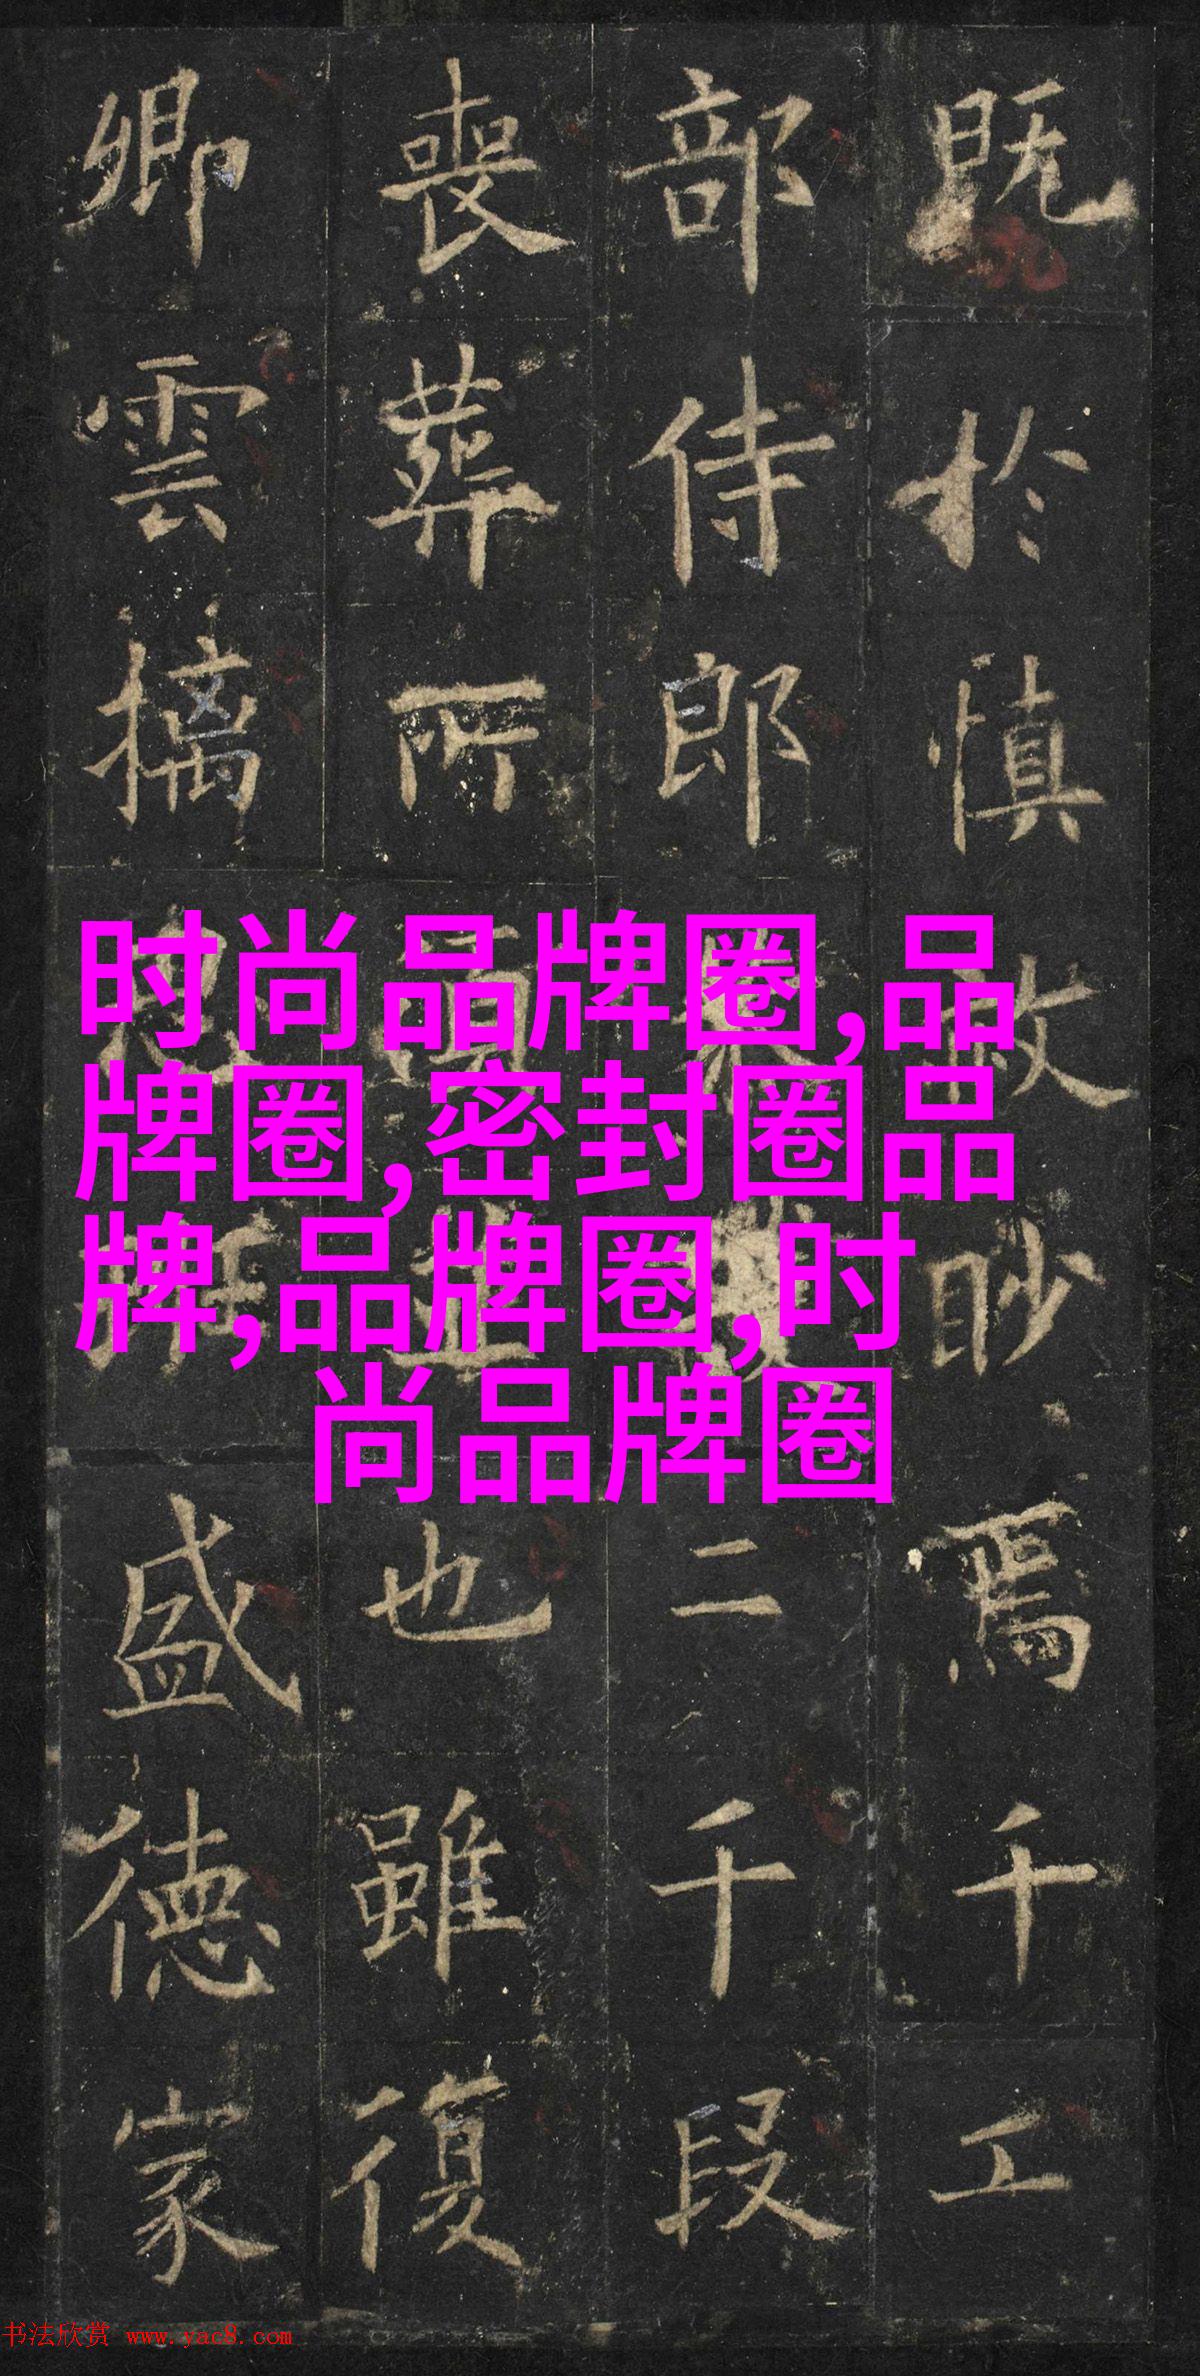 既於慎敢眇焉千工
部侍郎二千段
喪葬所也雖復
卿雲摛盛德家
时尚品牌圈,品
牌圈,密封圈品
牌,品牌圈,时
尚品牌圈
书法欣赏 www.yac8.com